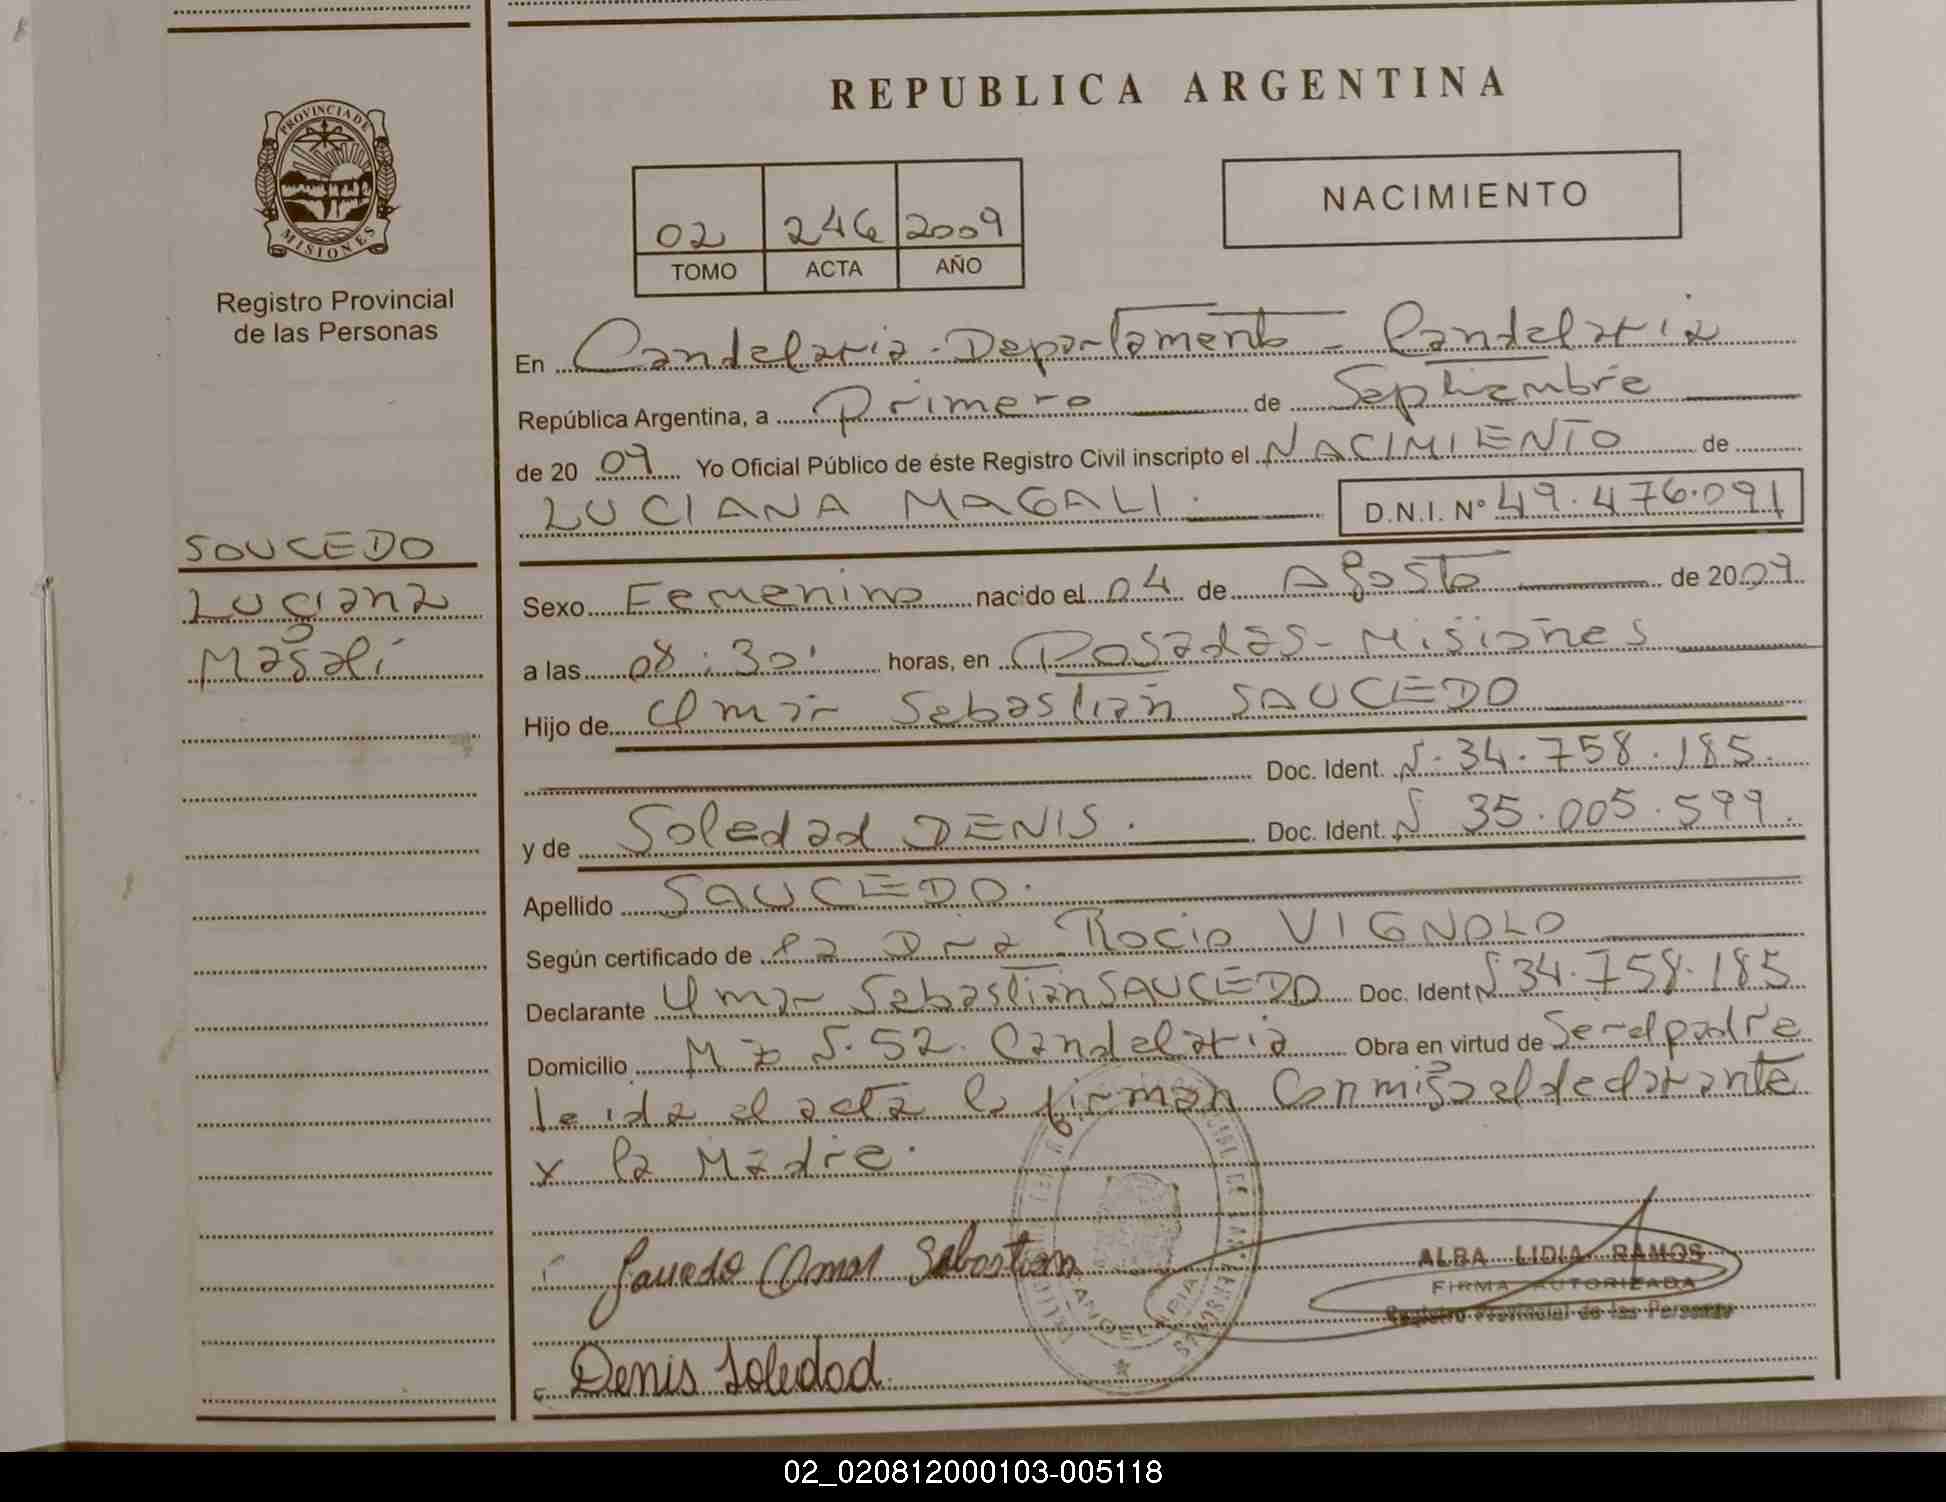 REPUBLICA ARGENTINA
PROVINCIA DE
MISIONES
Registro Provincial
de las Personas
NACIMIENTO
02 246 2009
TOMO ACTA AÑO
En Candelaria - Departamento - Candelaria
República Argentina, a Primero de Septiembre
de 20 09 Yo Oficial Público de éste Registro Civil inscripto el NACIMIENTO de
LUCIANA MAGALI. D.N.I. N° 49.476.091
SOUCEDO
Luciana
Magalí
Sexo Femenino nacido el 04 de Agosto de 2009
a las 08:30' horas, en Posadas - Misiones
Hijo de Omar Sebastian SAUCEDO
Doc. Ident. N. 34.758.185.
y de Soledad DENIS. Doc. Ident. N 35.005.599.
Apellido SAUCEDO.
Según certificado de la Dra Rocio VIGNOLO
Declarante Omar Sebastian SAUCEDO Doc. Ident N 34.758.185
Domicilio Mz N. 52. Candelaria Obra en virtud de Ser el padre
leida el acta la firman Conmigo el declarante
x la Madre.
Saucedo Omar Sebastian
ALBA LIDIA RAMOS
FIRMA AUTORIZADA
Registro Provincial de las Personas
Denis Soledad
02_020812000103-005118